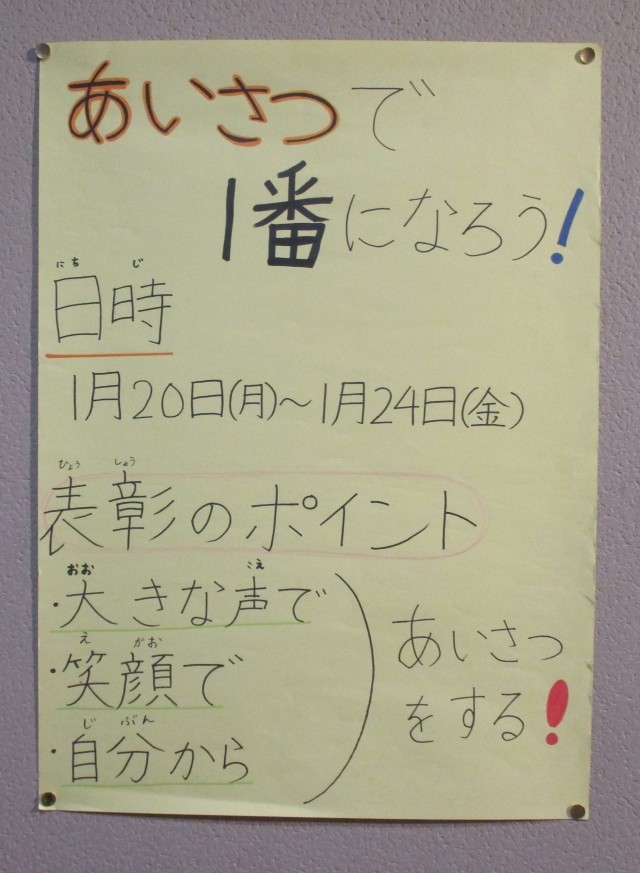 あいさつで
1番になろう!
にち じ
日時
1月20日(月)~1月24日(金)
ひょう しょう
表彰のポイント
おお こえ
・大きな声で
え がお
・笑顔で
じ ぶん
・自分から
あいさつ
をする!